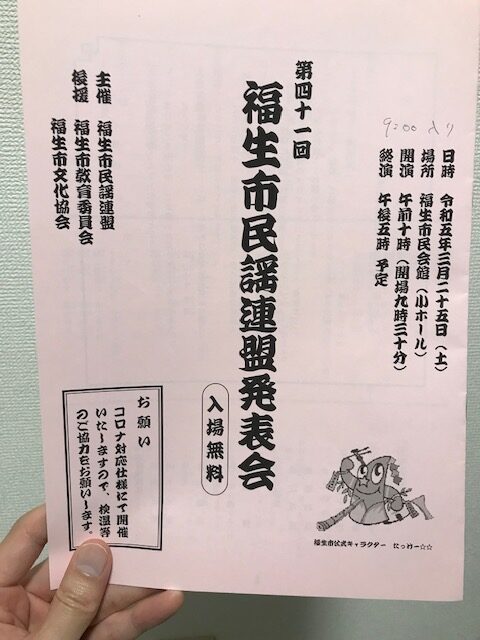 9:00 入り
日時 令和五年三月二十五日（土）
場所 福生市民会館（小ホール）
開演 午前十時（開場九時三十分）
終演 午後五時 予定
第四十一回
福生市民謡連盟発表会
入場無料
主催 福生市民謡連盟
後援 福生市教育委員会
福生市文化協会
お願い
コロナ対応仕様にて開催
いたしますので、検温等
のご協力をお願いします。
福生市公式キャラクター たっけー☆☆